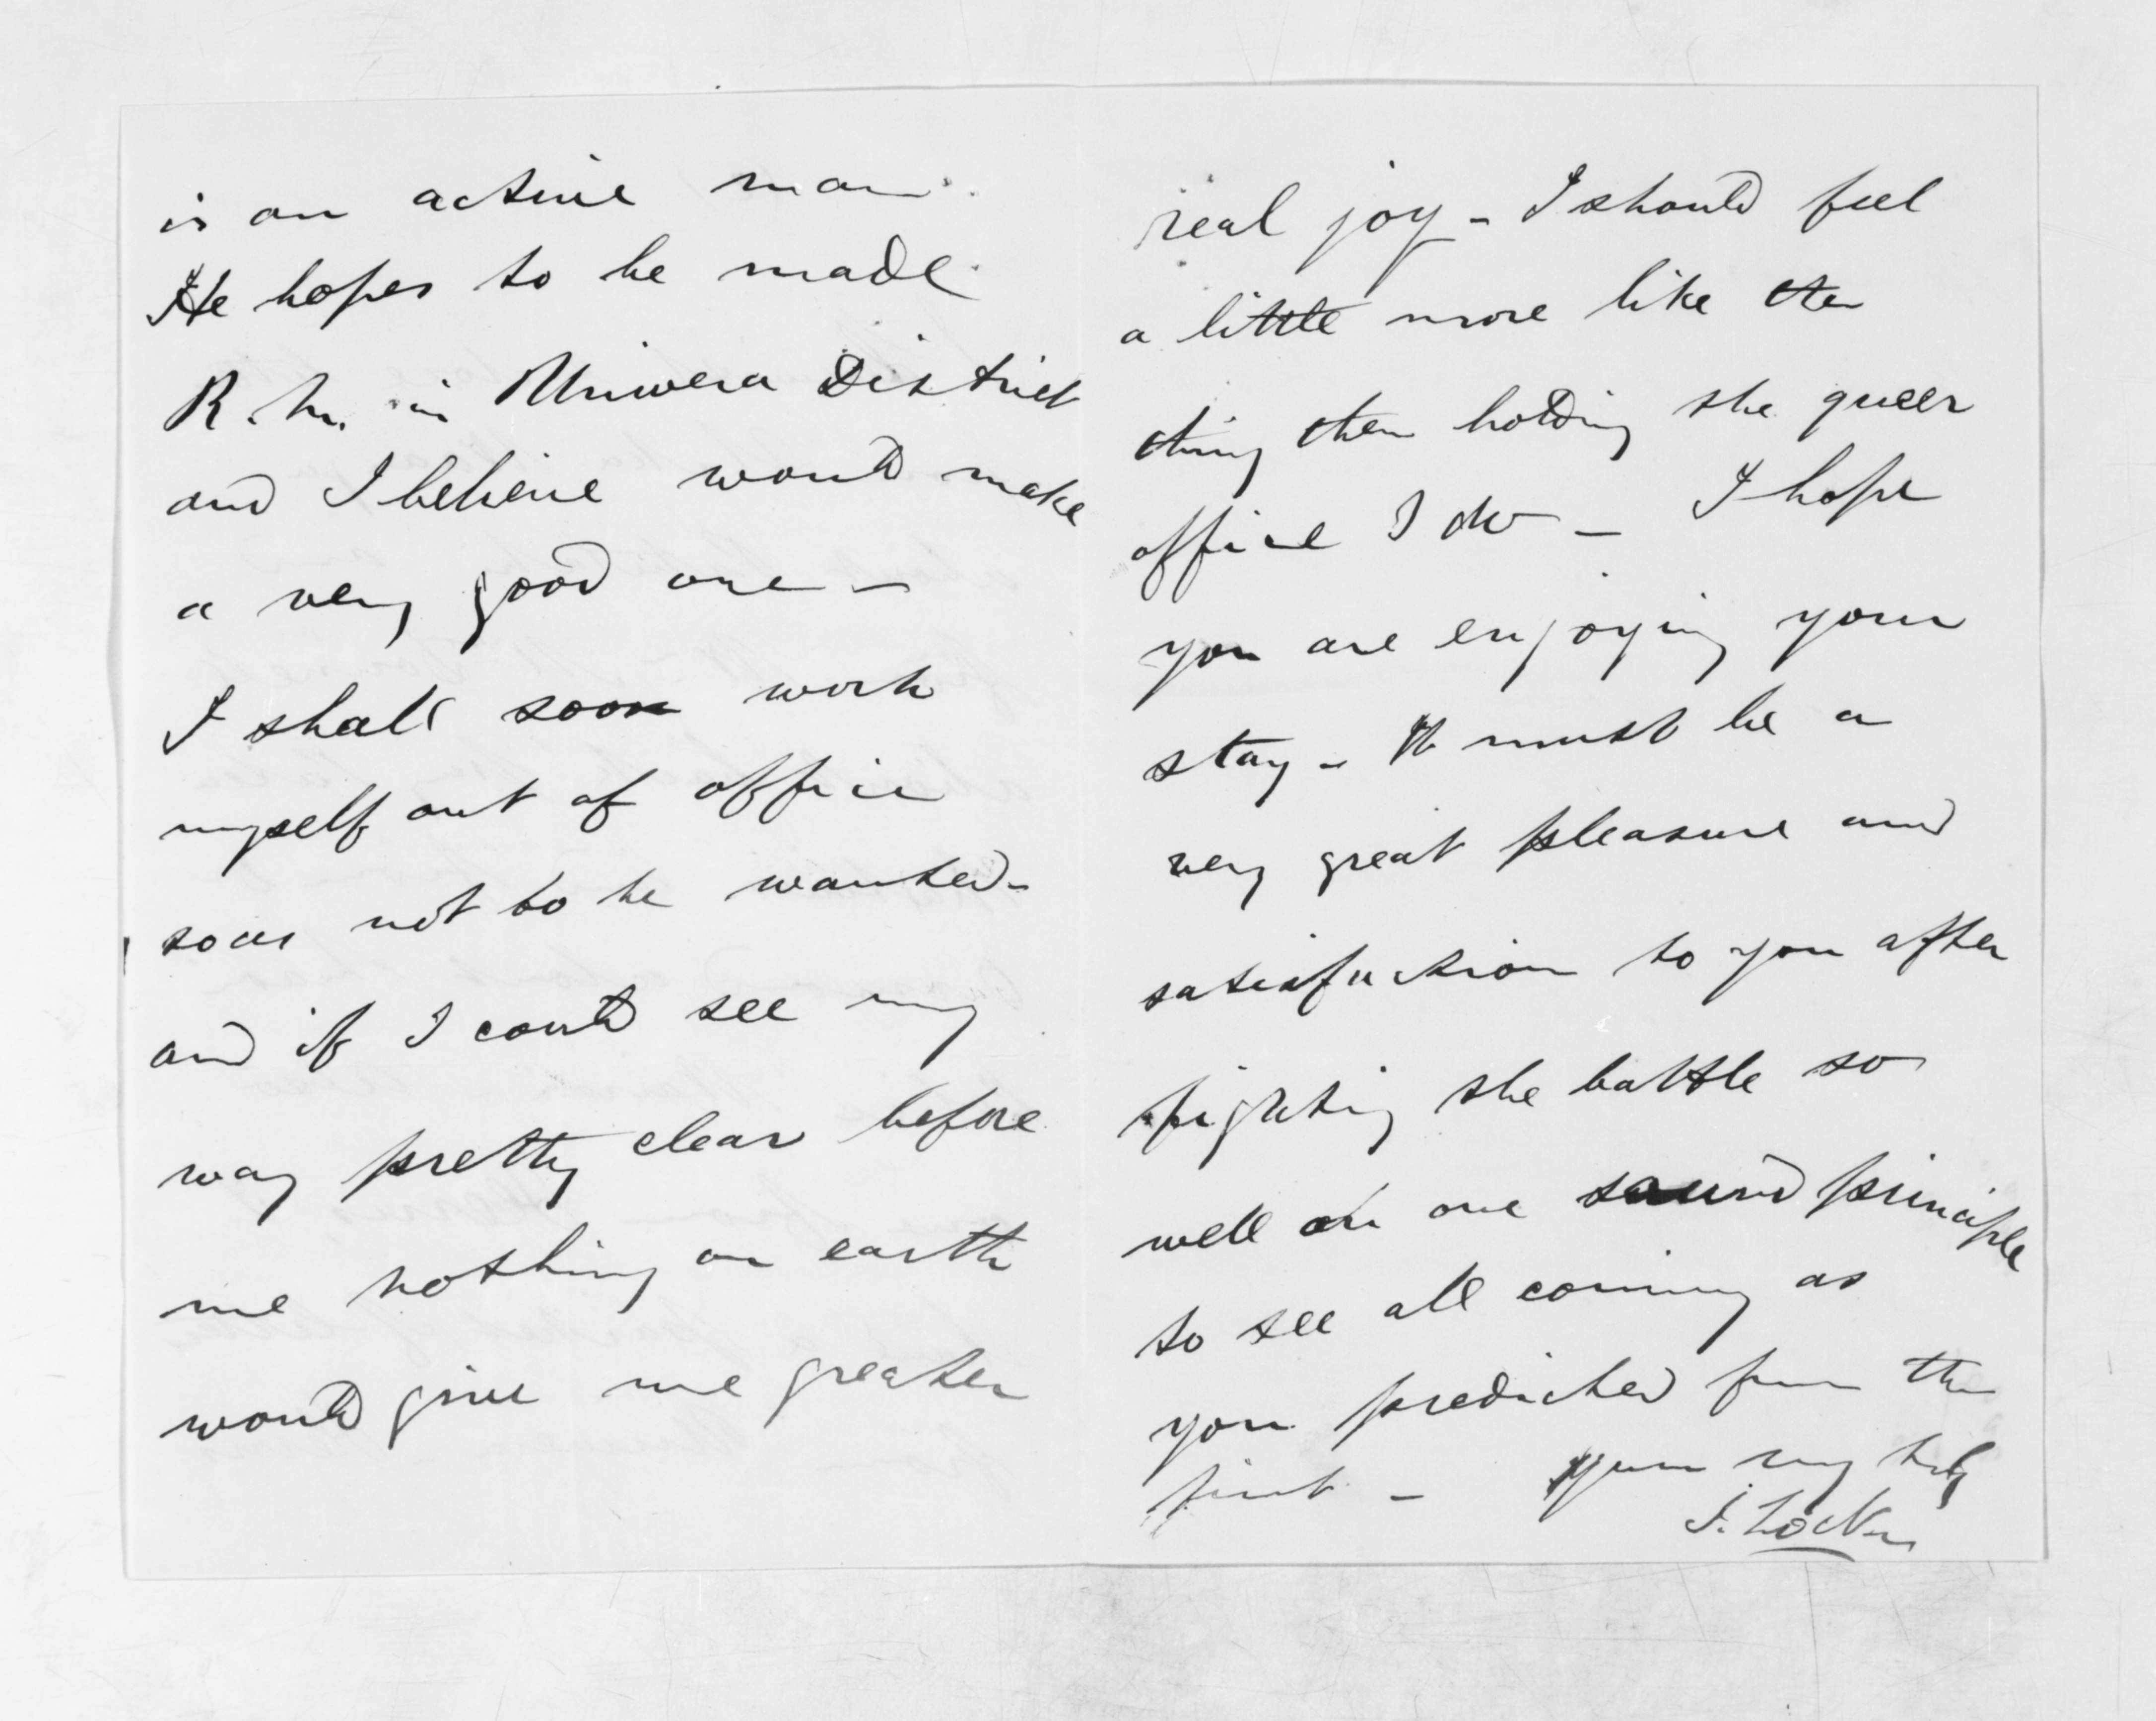 is an active man
He hopes to be made
R.M. in Uriwera District
and I believe would make
a very good one —
I shall soon work
myself out of office
so as not to be wanted —
and if I could see my
way pretty clear before
me nothing on earth
would give me greater
real joy — I should feel
a little more like the
thing then holding the queer
office I do — I hope
you are enjoying your
stay — It must be a
very great pleasure and
satisfaction to you after
fighting the battle so
well on one sound principle
to see all coming as
you predicted from the
first — Yours very truly
J. Locke